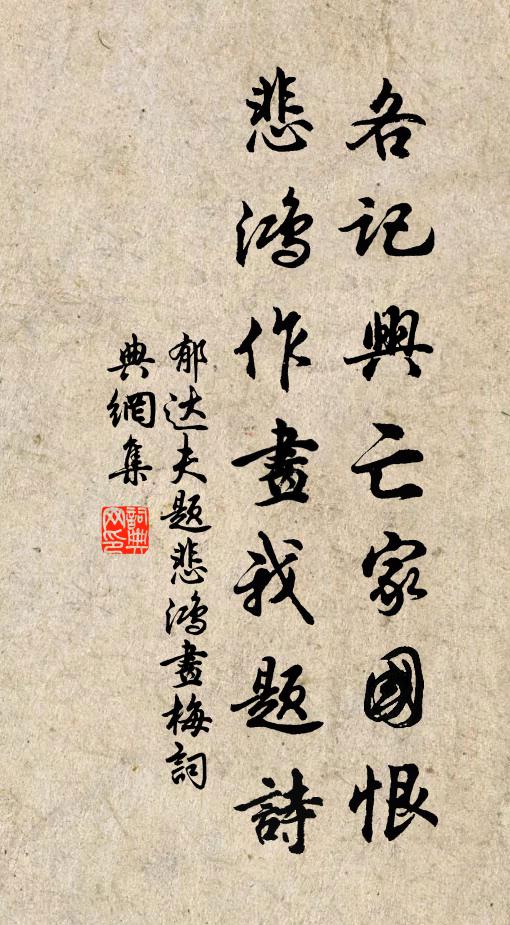 各記興亡家國恨
悲鴻作畫我題詩
郁达夫题悲鴻畫梅詞
典網集
詞典
网印